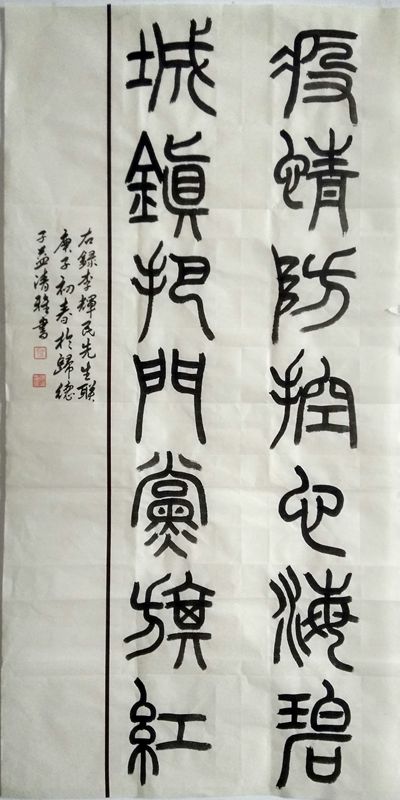 疫情防控心海碧
城鎮把門黨旗紅
右録李輝民先生联
庚子初春於歸德
子孟清雅書